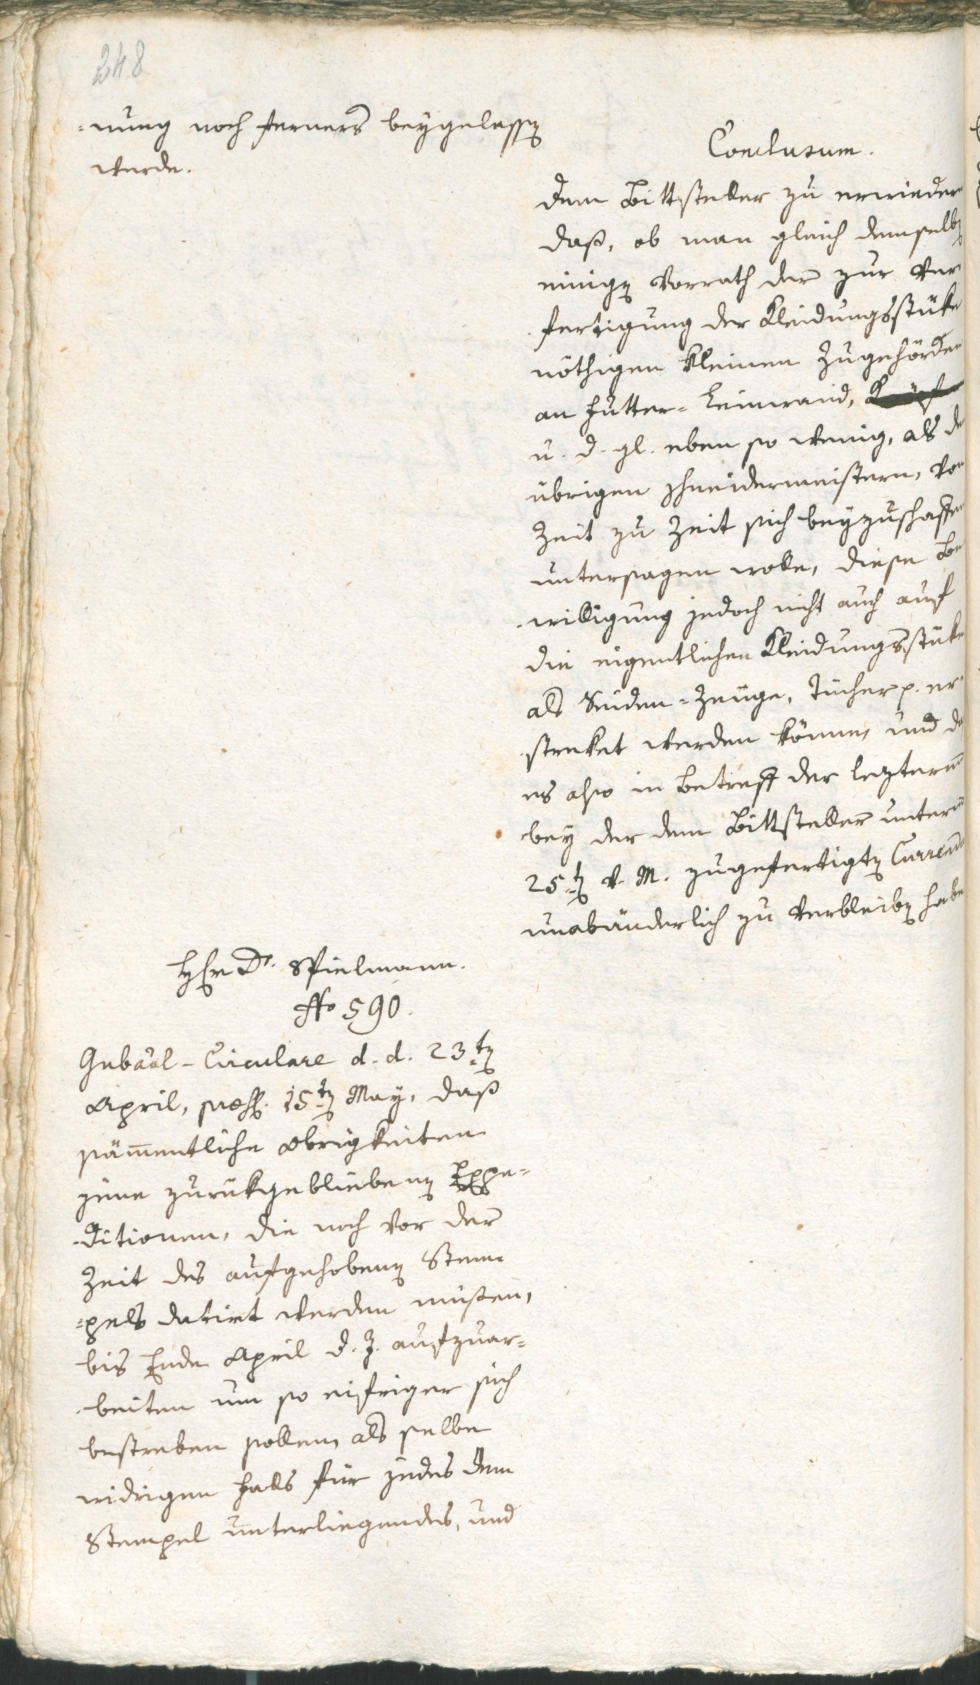 248
-nung noch ferners beygelassen
werde.
Conclusum.
dem Bittsteller zu erwiedern
daß, ob man gleich demselben
einigen Vorrath der zur Ver
fertigung der Kleidungsstüke
nöthigen kleinen Zugehörden
an Futter-Leinwand,
u. d. gl. eben so wenig, als de
übrigen Schneidermeistern, von
Zeit zu Zeit sich beyzuschaffen
untersagen wolle, diese Be
willigung jedoch nicht auch auf
die eigentlichen Kleidungsstüke
als Seiden-Zeuge, Tücher p. er
streket werden könne, und da
es also in Betreff der leztern
bey der dem Bittsteller unterm
25ten v. M. zugefertigten Currenda
unabänderlich zu verbleiben habe
H Dr. Spielmann.
No 590.
Gubaal-Circulare d. d. 23ten
April, praes. 15ten May, daß
sämmentliche Obrigkeiten
jene zurükgebliebenen Expe-
ditionen, die noch vor der
Zeit des aufgehobenen Stem
-pels datirt werden müßen,
bis Ende April d. J. aufzuar-
beiten um so eifriger sich
bestreben sollen, als selbe
widrigen Falls für jedes dem
Stempel unterliegendes, und